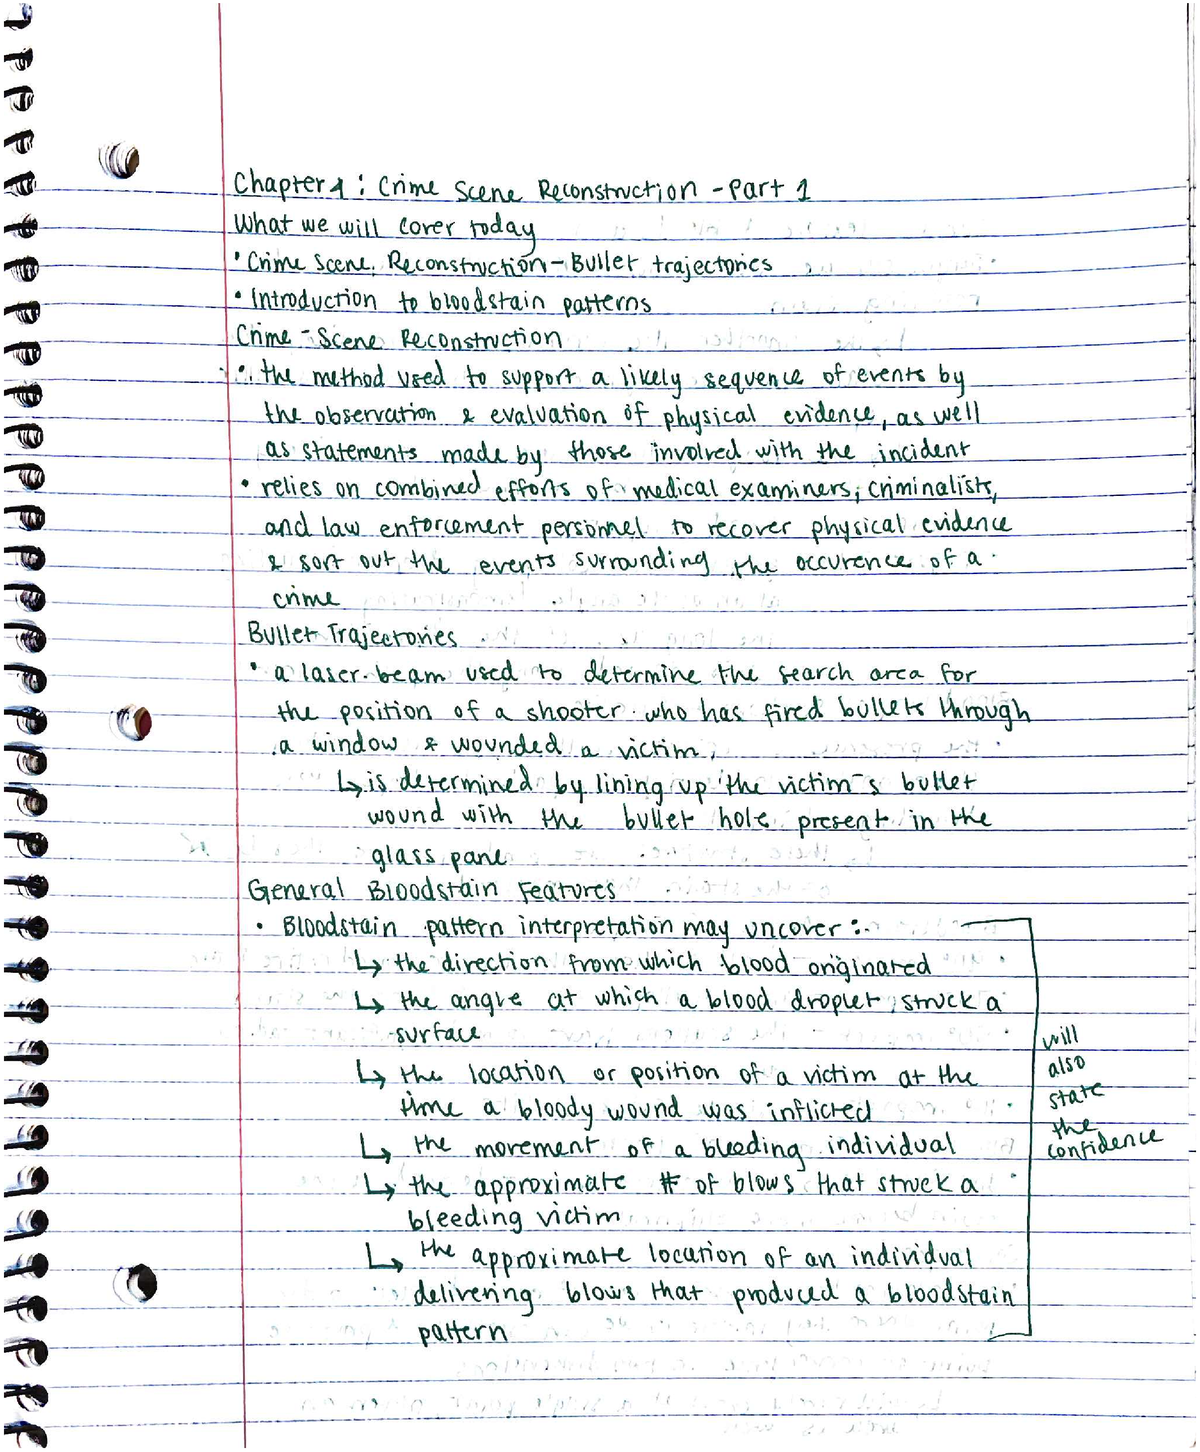 Chapter 4: Crime Scene Reconstruction - Part 1
What we will cover today
• Crime Scene Reconstruction - Bullet trajectories
• Introduction to bloodstain patterns
Crime-Scene Reconstruction
• the method used to support a likely sequence of events by
the observation & evaluation of physical evidence, as well
as statements made by those involved with the incident
• relies on combined efforts of medical examiners, criminalists,
and law enforcement personnel to recover physical evidence
& sort out the events surrounding the occurence of a
crime
Bullet Trajectories
• a laser beam used to determine the search area for
the position of a shooter who has fired bullets through
a window & wounded a victim
↳ is determined by lining up the victim's bullet
wound with the bullet hole present in the
glass pane
General Bloodstain Features
• Bloodstain pattern interpretation may uncover:
↳ the direction from which blood originated
↳ the angle at which a blood droplet struck a
surface
↳ the location or position of a victim at the
time a bloody wound was inflicted
↳ the movement of a bleeding individual
↳ the approximate # of blows that struck a
bleeding victim
↳ the approximate location of an individual
delivering blows that produced a bloodstain
pattern
will
also
state
the
confidence